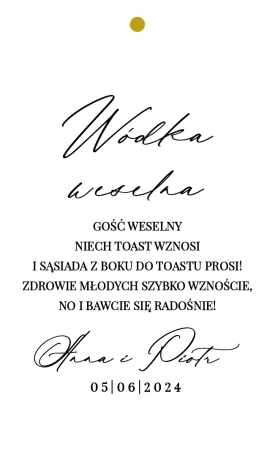 Wódka
weselna
GOŚĆ WESELNY
NIECH TOAST WZNOSI
I SĄSIADA Z BOKU DO TOASTU PROSI!
ZDROWIE MŁODYCH SZYBKO WZNOŚCIE,
NO I BAWCIE SIĘ RADOŚNIE!
Anna i Piotr
05|06|2024